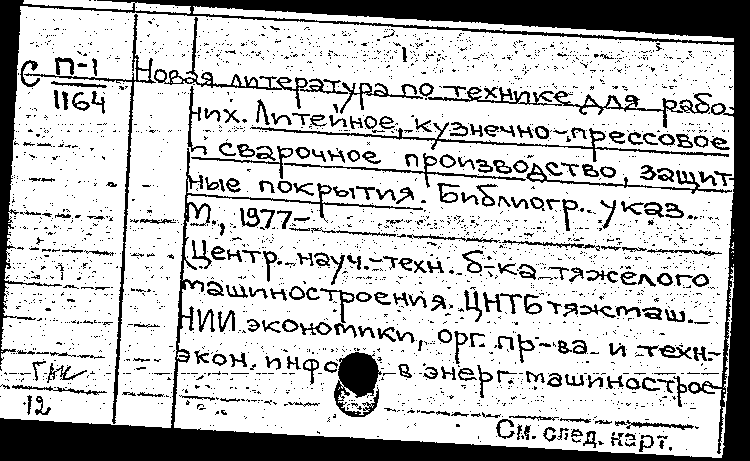 С П-1
1164
Новая литература по технике для рабо-
чих. Литейное, кузнечно-прессовое
и сварочное производство, защит-
ные покрытия. Библиогр. указ.
М., 1977-
(Центр. науч.-техн. б-ка тяжелого
машиностроения. ЦНТБтяжмаш.
НИИ экономики, орг. пр-ва и техн-
экон. инфо в энерг. машинострое-
12
См. след. карт.